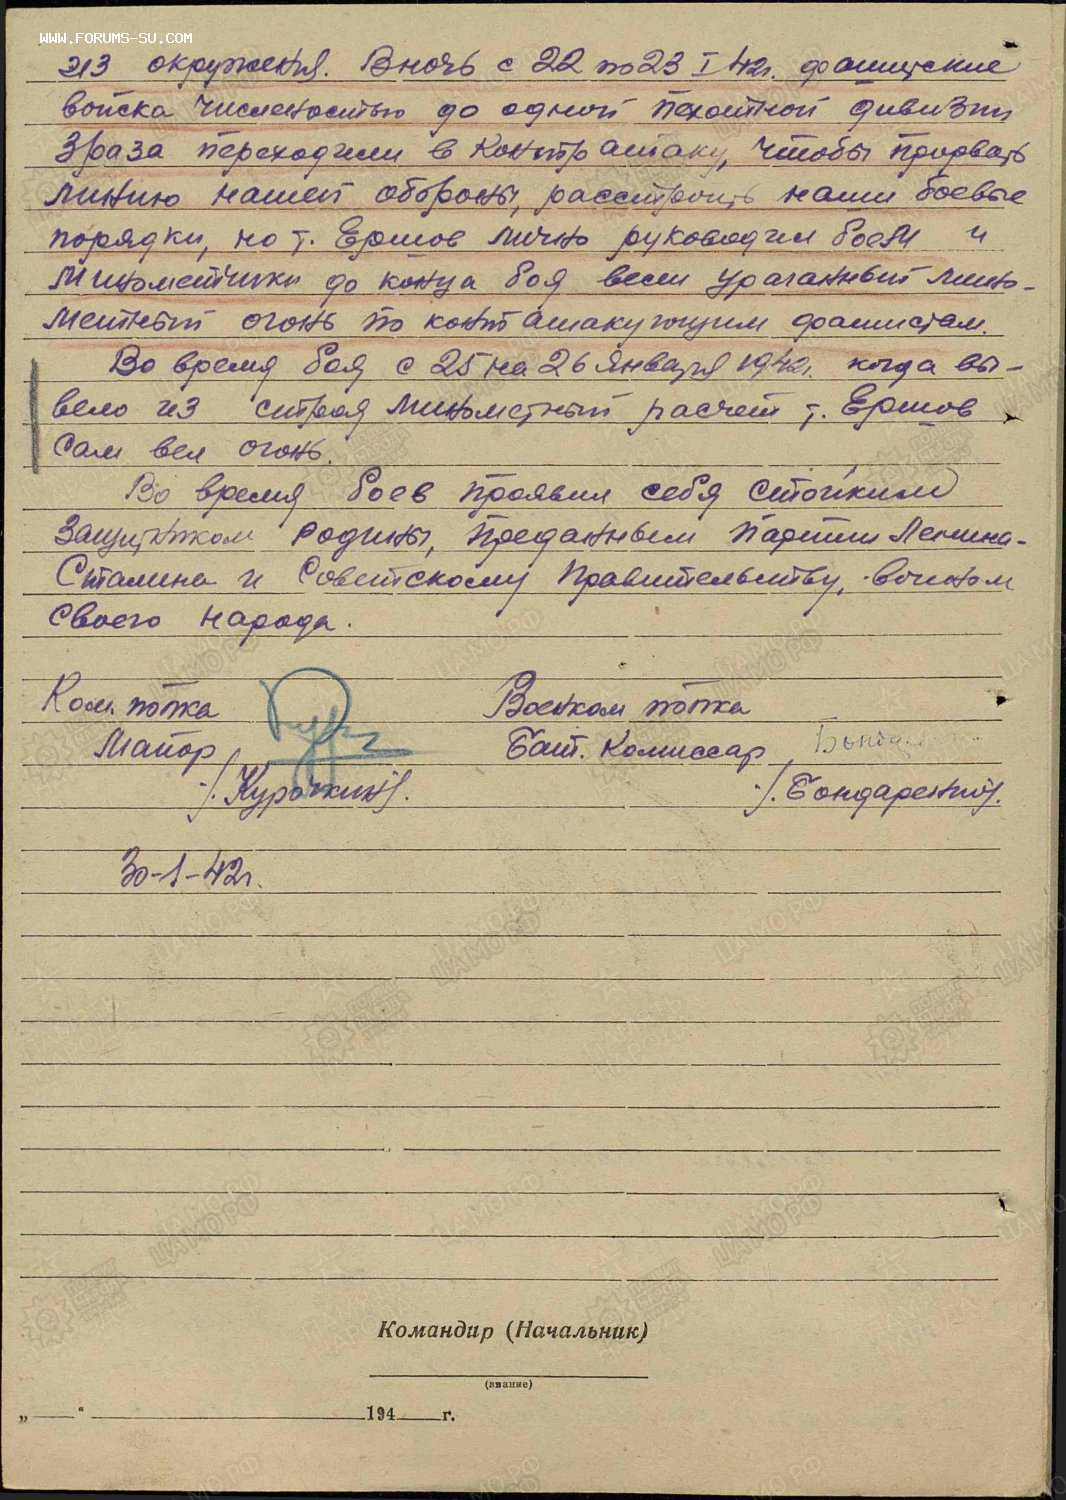 WWW.FORUMS-SU.COM
из окружения. В ночь с 22 по 23 I 42г. фашицские
войска численостью до одной пехотной дивизии
3 раза переходили в контр атаку, чтобы прорвать
линию нашей обороны, расстроить наши боевые
порядки, но т. Ершов лично руководил боем и
минометчики до конца боя вели ураганный мино-
метный огонь по контратакующим фашистам.
Во время боя с 25 на 26 января 1942г. когда вы-
вело из строя минометный расчет т. Ершов
сам вел огонь.
Во время боев проявил себя стойким
защитником родины, преданным партии Ленина-
Сталина и Советскому Правительству, воином
своего народа.
Ком. полка
Военком полка
Майор
Бат. Комиссар
/.Курочкин/.
/.Бондаренко/.
30-1-42г.
Командир (Начальник)
(звание)
„ “ 194 г.